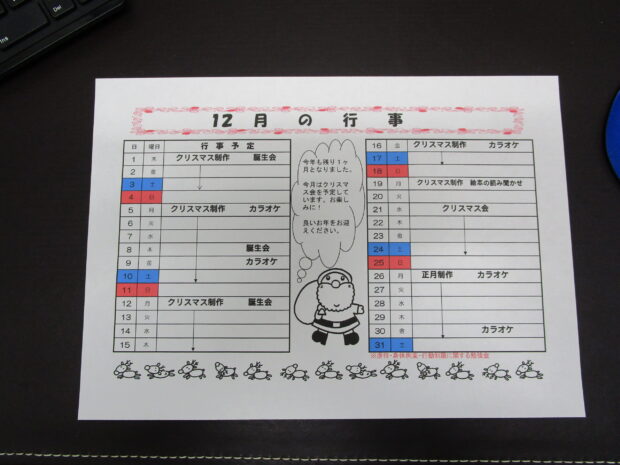 12 月 の 行 事
日 曜日 行 事 予 定
1 木 クリスマス制作 誕生会
2 金
3 土
4 日
5 月 クリスマス制作 カラオケ
6 火
7 水
8 木 誕生会
9 金 カラオケ
10 土
11 日
12 月 クリスマス制作 誕生会
13 火
14 水
15 木
今年も残り1ヶ
月となりました。
今月はクリスマ
ス会を予定して
います。お楽し
みに！
良いお年をお迎
えください。
16 金 クリスマス制作 カラオケ
17 土
18 日
19 月 クリスマス制作 絵本の読み聞かせ
20 火
21 水 クリスマス会
22 木
23 金
24 土
25 日
26 月 正月制作 カラオケ
27 火
28 水
29 木
30 金 カラオケ
31 土
※虐待・身体拘束・行動制限に関する勉強会
Del
Ins